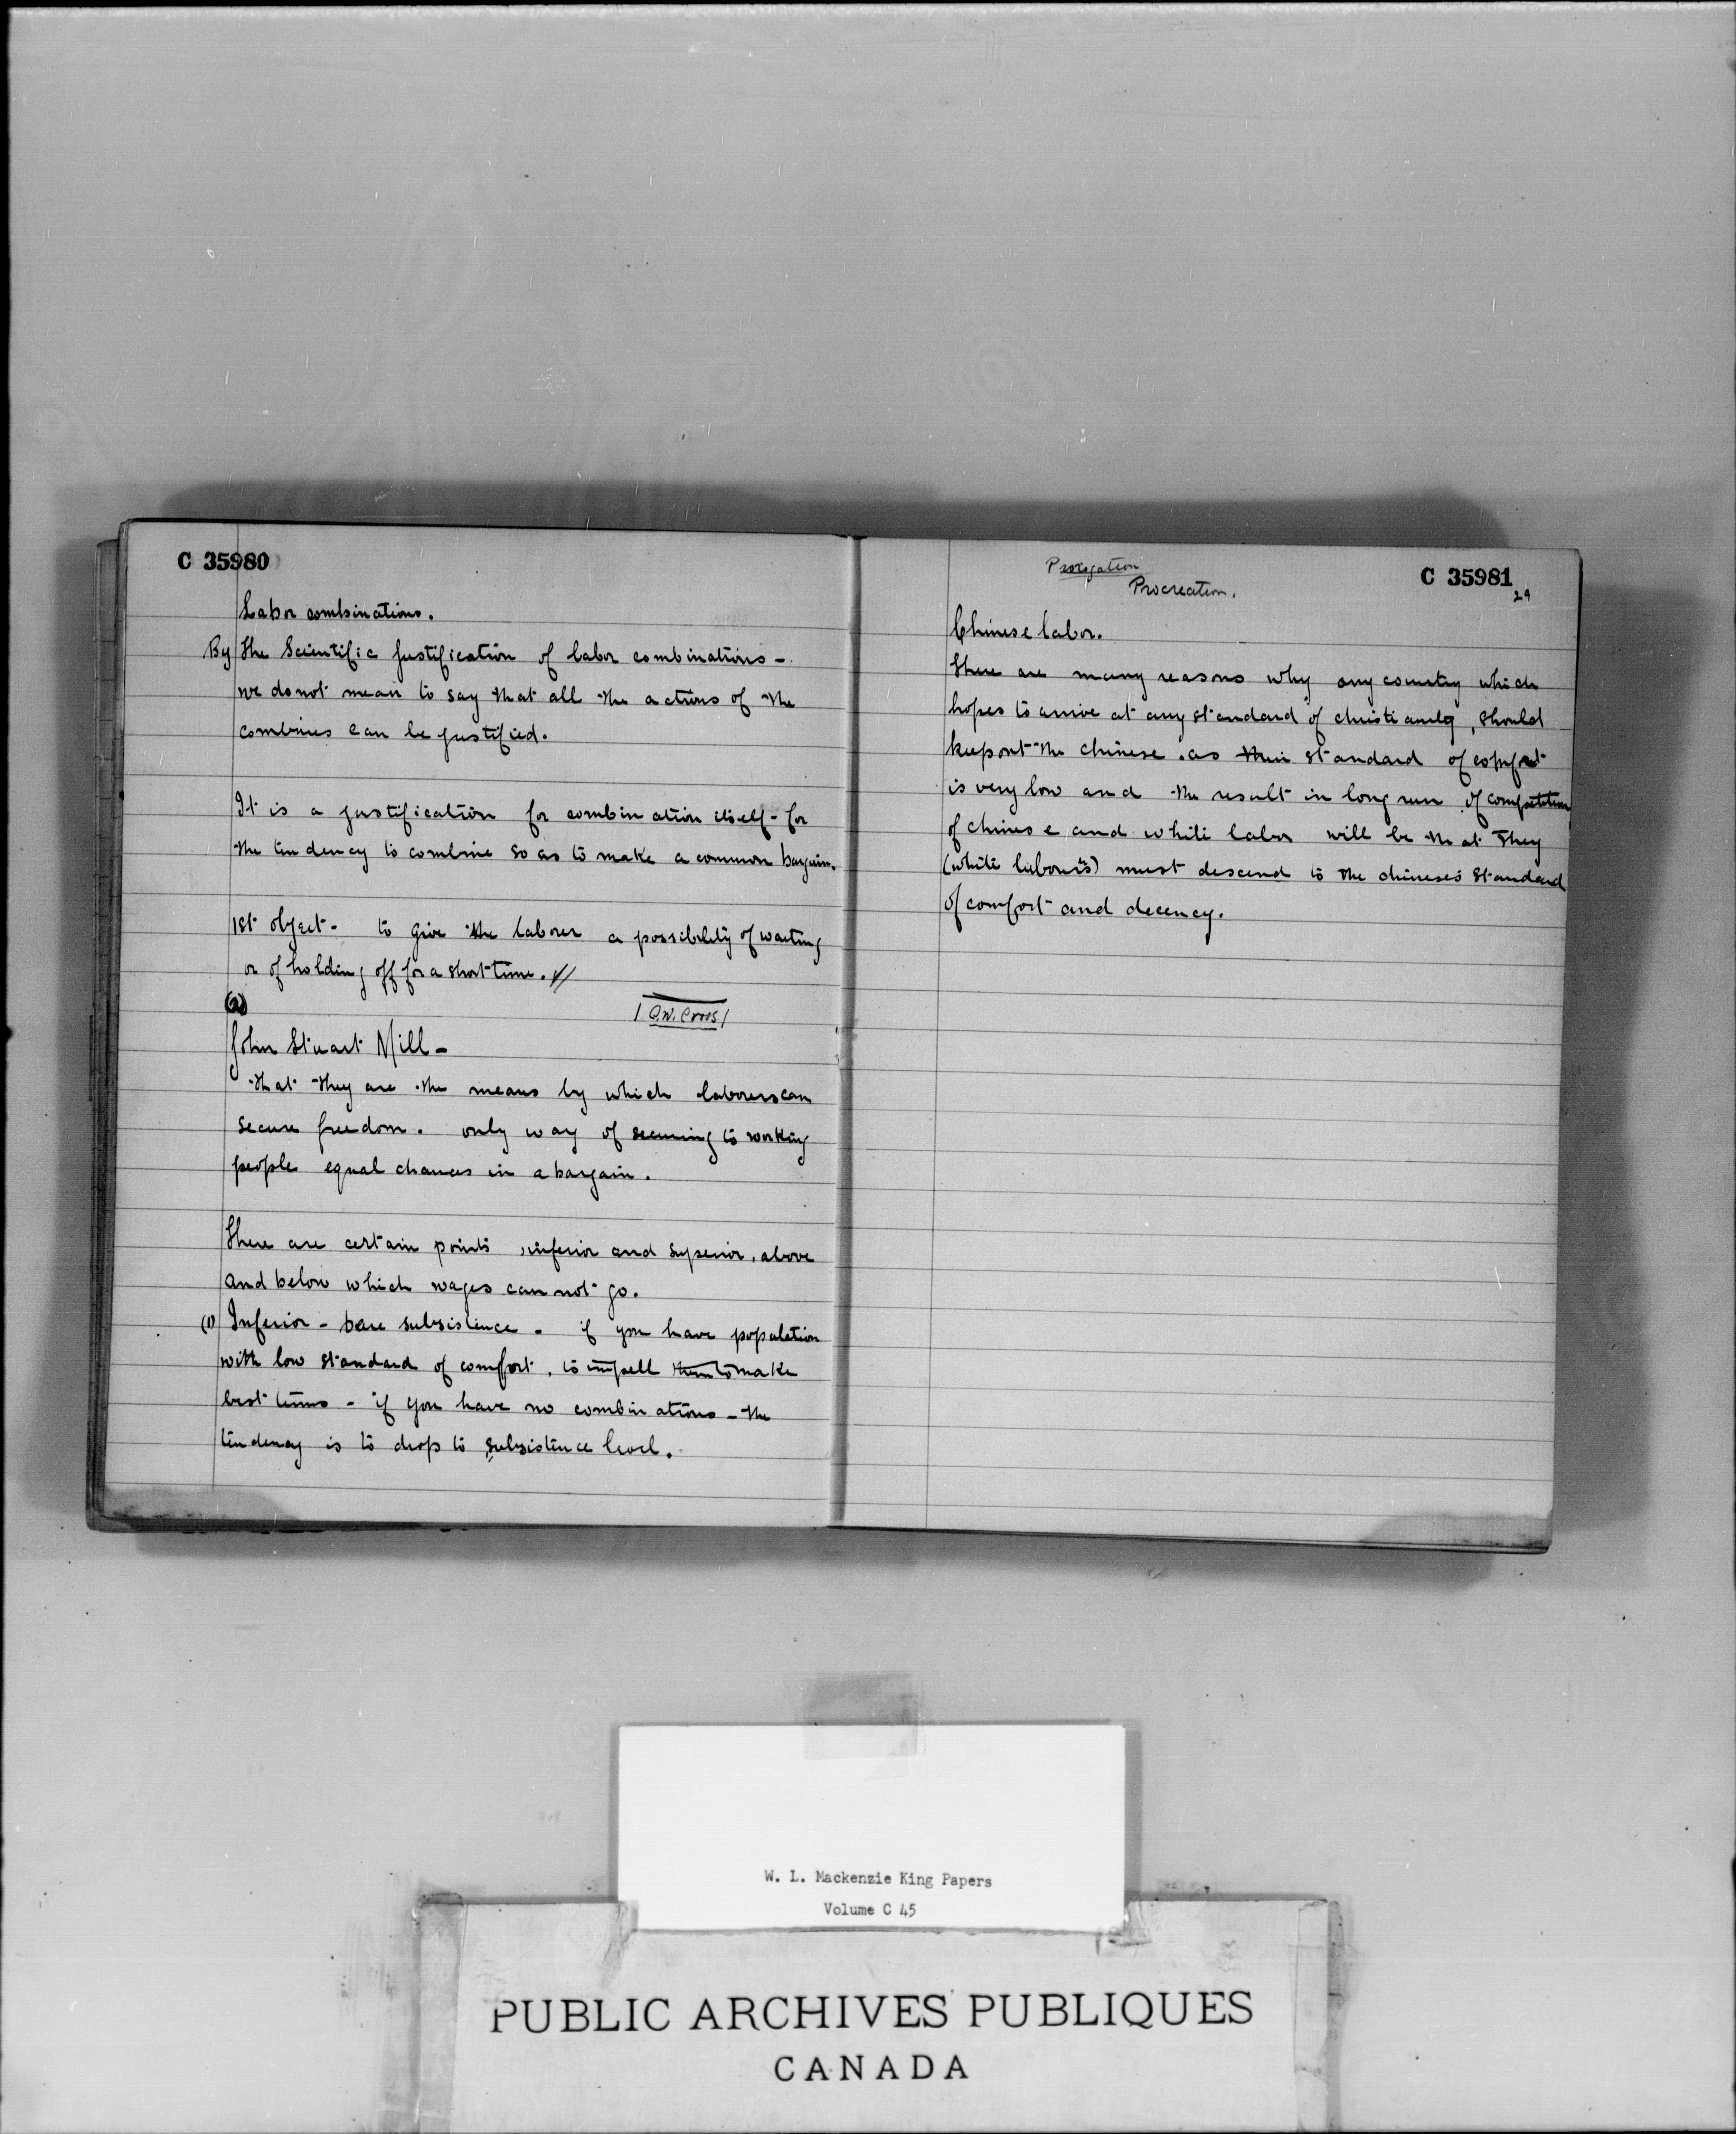 C 35980
Labor combinations.
By the Scientific justification of labor combinations -
we do not mean to say that all the actions of the
combines can be justified.
It is a justification for combination itself - for
the tendency to combine so as to make a common bargain.
1st object - to give the laborer a possibility of waiting
or of holding off for a short time. //
John Stuart Mill -
that they are the means by which laborers can
secure freedom. only way of securing to working
people equal chances in a bargain.
There are certain points, inferior and superior, above
and below which wages can not go.
(1) Inferior - bare subsistence - if you have population
with low standard of comfort, to impell them to make
best terms - if you have no combinations - the
tendency is to drop to subsistence level.
Procreation.
C 35981
29
Chinese labor.
There are many reasons why any country which
hopes to arrive at any standard of christianity, should
keep out the chinese. as their standard of comfort
is very low and the result in long run of competition
of chinese and white labor will be that they
(white laborers) must descend to the chinese's standard
of comfort and decency.
W. L. Mackenzie King Papers
Volume C 45
PUBLIC ARCHIVES PUBLIQUES
CANADA